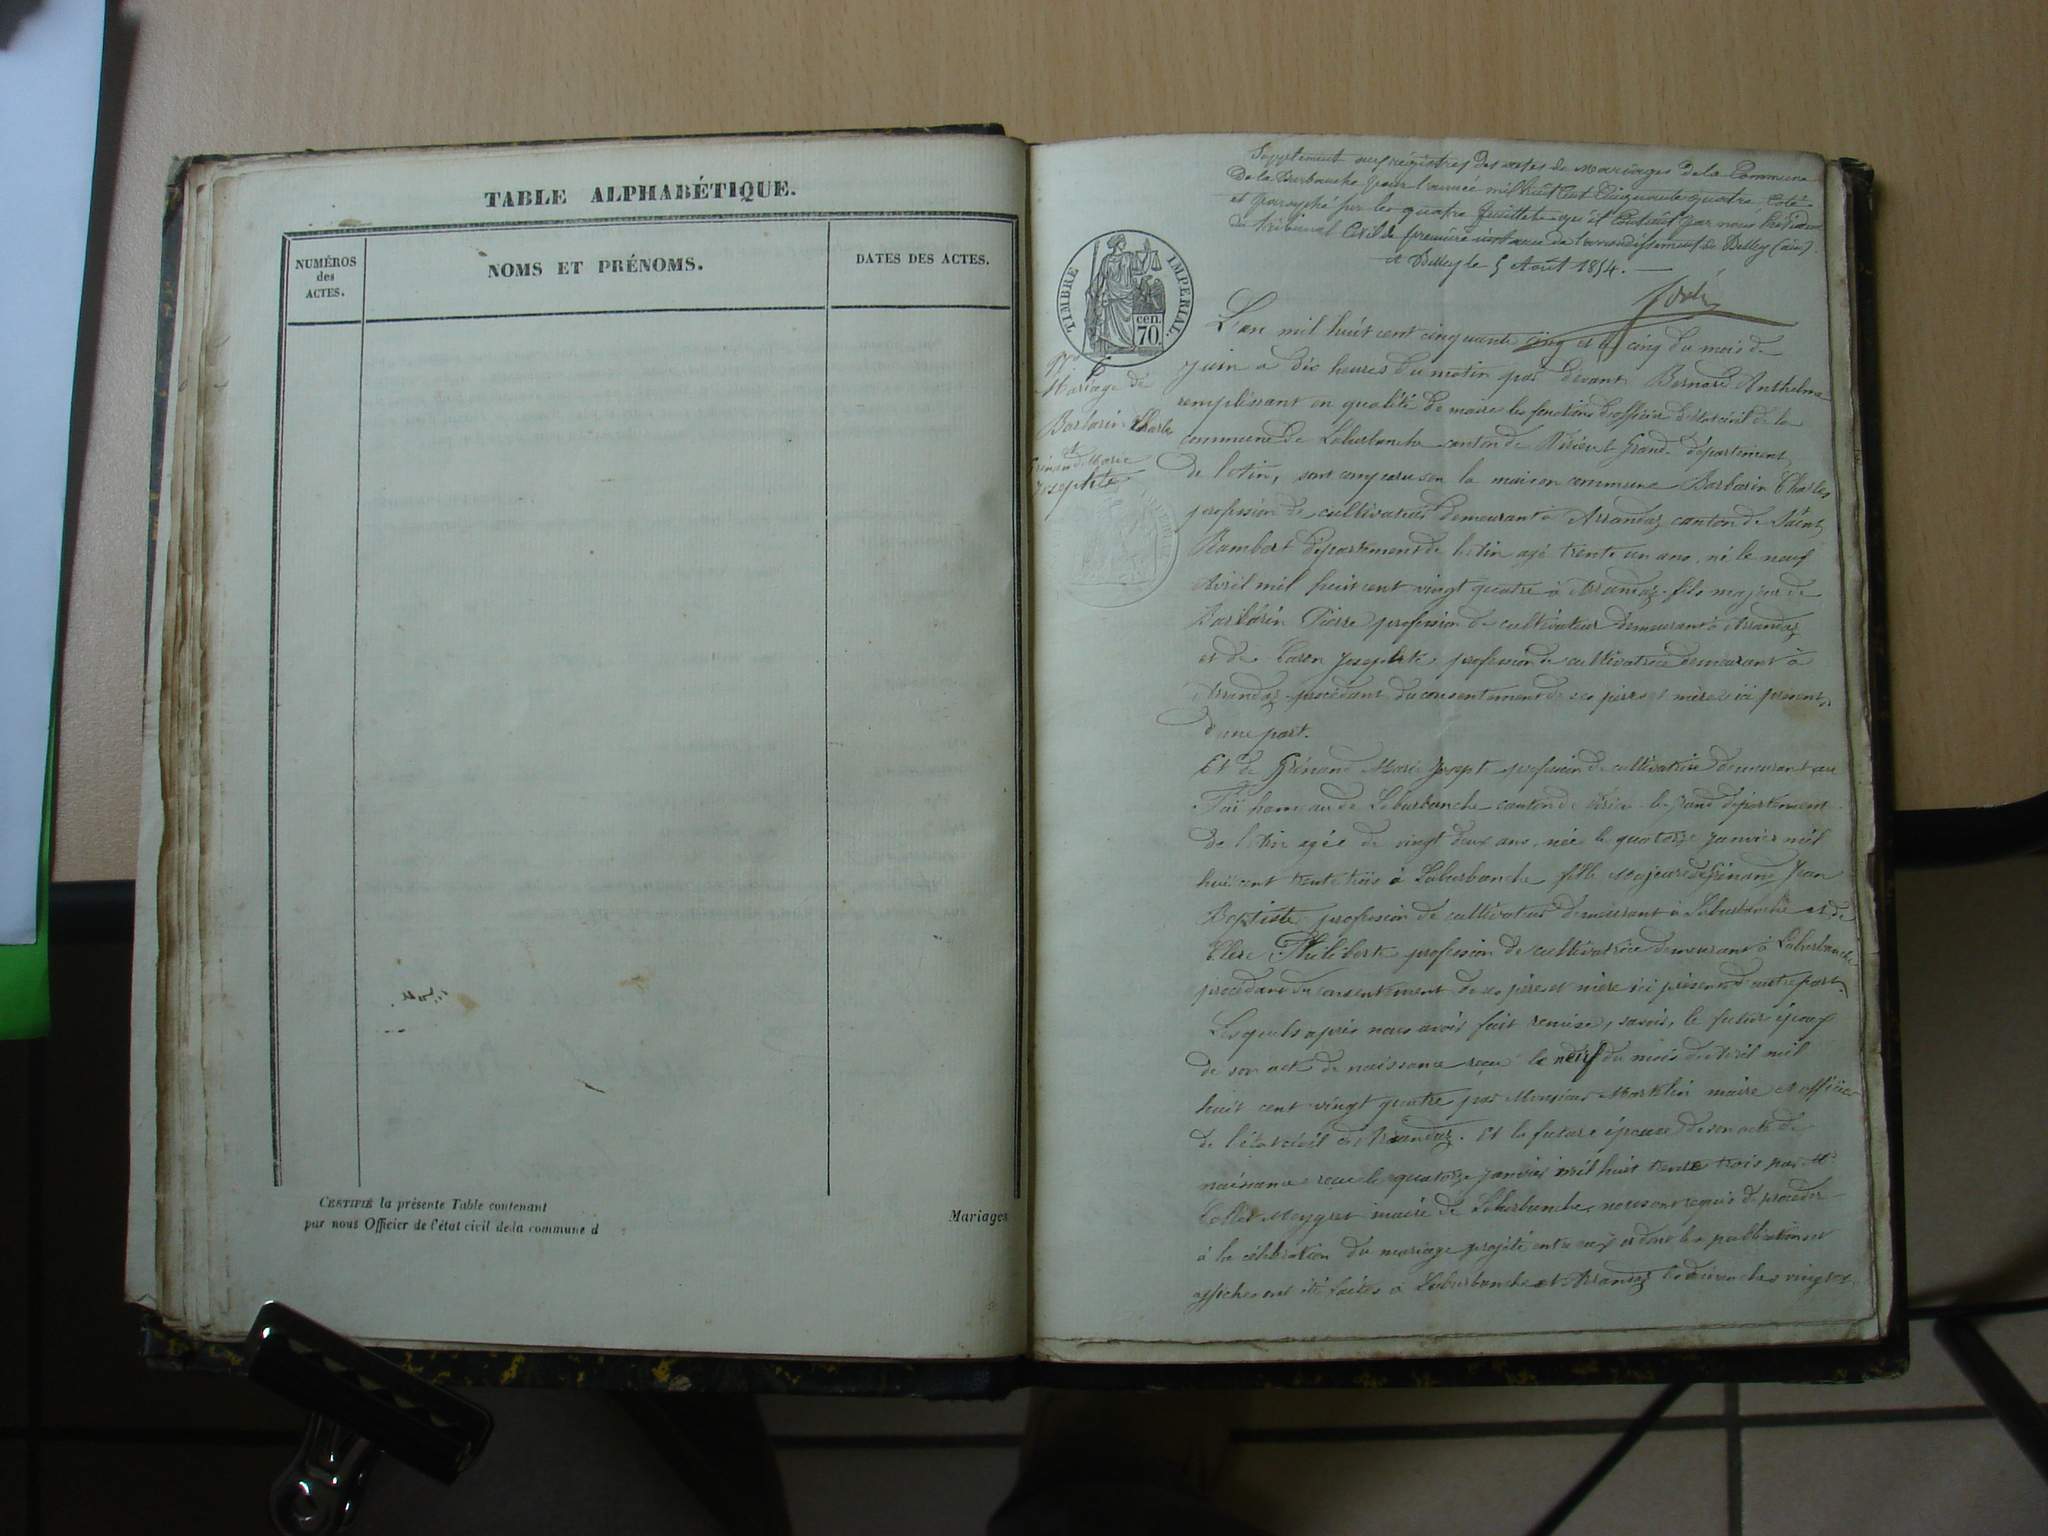 TABLE ALPHABÉTIQUE.
NUMÉROS
des
ACTES.
NOMS ET PRÉNOMS.
DATES DES ACTES.
CERTIFIÉ la présente Table contenant
par nous Officier de l'état civil de la commune d
Mariages
Supplément aux registres des actes de Mariages de la Commune
De la Burbanche pour l'année mil huit cent cinquante quatre Coté
et paraphé sur les quatre feuillets qu'il contient par nous Président
du tribunal Civil de première instance de l'arrondissement de Belley (ain)
à Belley le 5 Août 1854.
TIMBRE IMPERIAL.
cen.
70.
Mariage de
Barbarin Charles
et
Grinand Marie
Josephte
L'an mil huit cent cinquante cinq et le cinq du mois de
juin a dix heures du matin par devant Bernard Anthelme
remplissant en qualité de maire les fonctions d'officier d'état civil de la
commune de Laburbanche canton de Virieu le Grand département
de l'Ain, sont comparus en la maison commune Barbarin Charles
profession de cultivateur demeurant à Arrandaz canton de Saint
Rambert département de l'Ain agé trente un ans, né le neuf
Avril mil huit cent vingt quatre à Arrandaz fils majeur de
Barbarin Pierre profession de cultivateur demeurant à Arrandaz
et de Josephte profession de cultivatrice demeurant à
Arrandaz procédant du consentement de ses père et mère ici présents
d'une part.
Et de Grinand Marie Josepte profession de cultivatrice demeurant au
hameau de Laburbanche canton de Virieu le grand département
de l'Ain agée de vingt deux ans, née le quatorze janvier mil
huit cent trente trois à Laburbanche fille majeure de Grinand Jean
Baptiste profession de cultivateur demeurant à Laburbanche et de
Clerc Philiberte profession de cultivatrice demeurant à Laburbanche
procédant du consentement de ses père et mère ici présents d'autre part.
Lesquels après nous avoir fait remise, savoir, le futur époux
de son acte de naissance reçu le neuf du mois d'avril mil
huit cent vingt quatre par Monsieur maire et officier
de l'état civil de Arrandaz. Et la future épouse de son acte de
naissance reçu le quatorze janvier mil huit trente trois par Mr
Collet Meygret maire de Laburbanche, nous ont requis de procéder
à la célébration du mariage projeté entre eux et dont les publications et
affiches ont été faites à Laburbanche et Arrandaz les dimanches vingt et